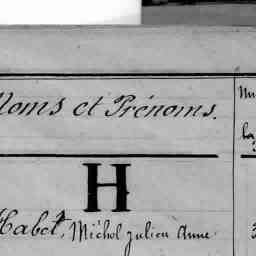 Noms et Prénoms.
H
Habet, Michel julien Anne